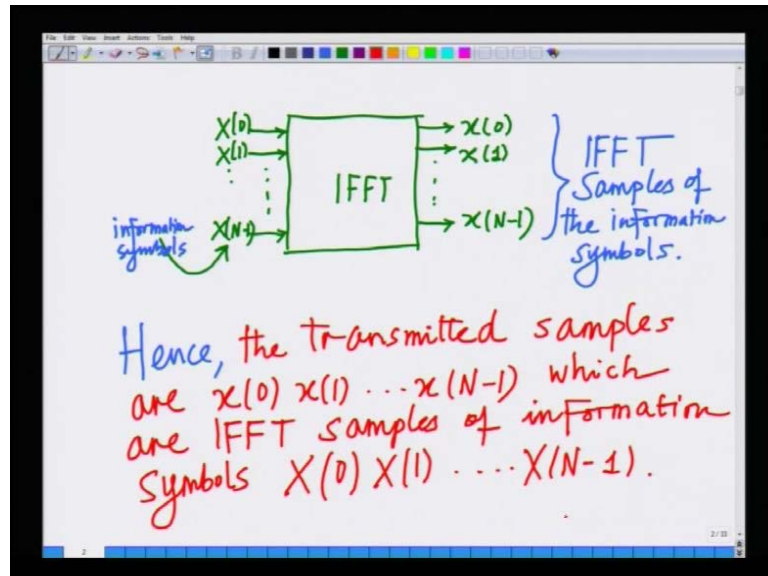 File Edit View Insert Actions Tools Help
X(0) x(0)
X(1) x(1)
IFFT
X(N-1) x(N-1)
information
symbols
IFFT
Samples of
the information
symbols.
Hence, the transmitted samples
are x(0) x(1) ... x(N-1) which
are IFFT samples of information
symbols X(0) X(1) .... X(N-1).
2